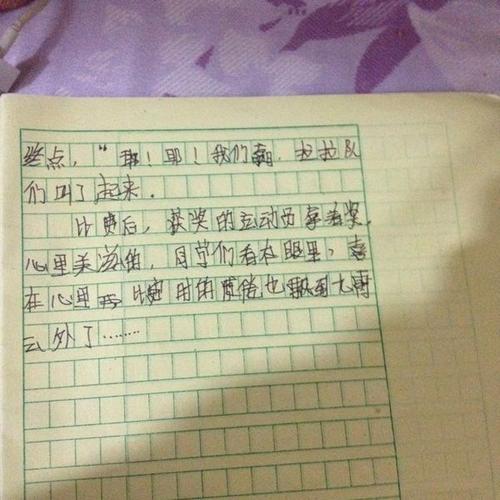 终点，“耶！耶！我们赢，拉拉队
们叫了起来．
比赛后，获奖的运动员拿着奖，
心里美滋的，同学们看在眼里，喜
在心里 比赛时的疲倦也飘到九霄
云外了……